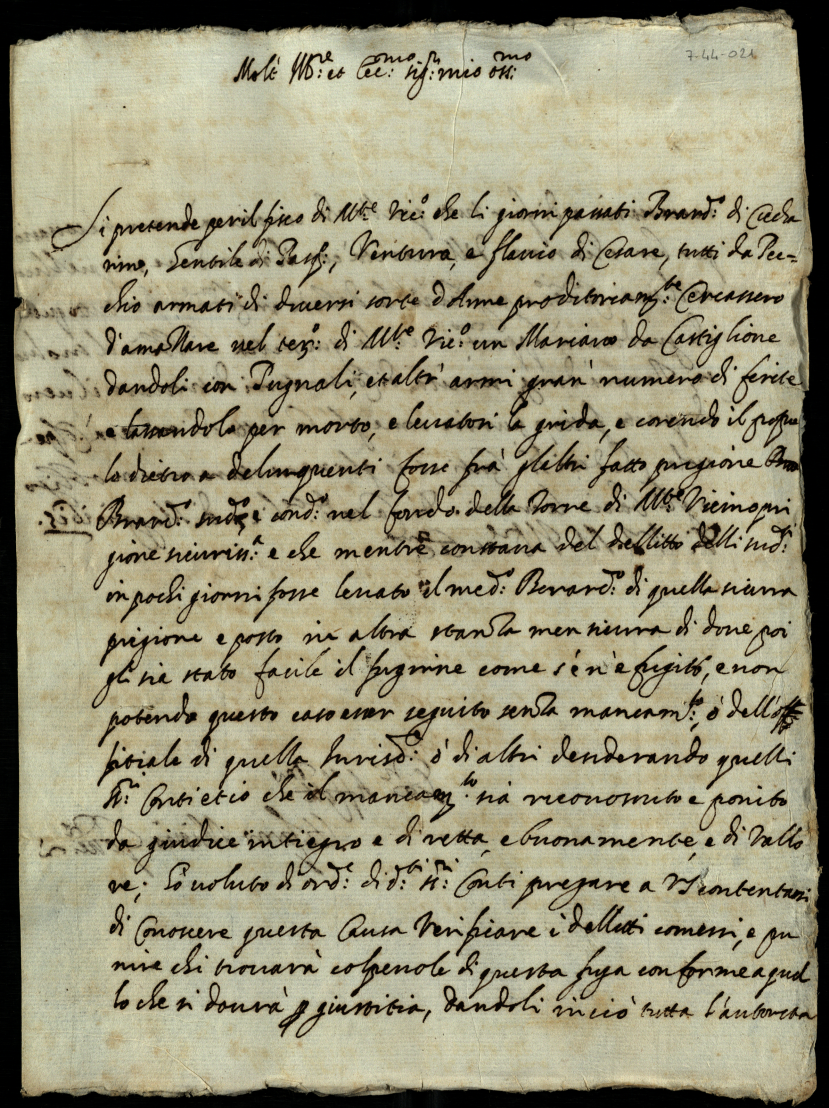 7-44-021
Molt Ill.re et Ecc.mo sig.r mio oss.mo
Si pretende per il fisco di M.te Vic.o che li giorni passati Brard.o di Cecha
rino, Gentile di Pasq., Ventura, e flavio di Cesare, tutti da Pee=
chio armati di diversi sorte d'Arme proditoriam.te Cercassero
d'amazzare nel ter.o di M.te Vic.o un Mariano da Castiglione
dandoli con Pugnali, et altr' armi gran' numero di ferite
e lassandolo per morto, e levatosi la grida, e corendo il popu
lo dietro a delinquenti fosse frà glaltri fatto pregione
Brard.o sud.o e cond.o nel fondo della Torre di M.te Vicino pri
gione sicuriss.a e che mentre constava del dellitto delli sud.i
in pochi giorni fosse levato il med.o Berard.o di quella sicura
pregione e posto in altra stanza men sicura di dove poi
gli sia stato facile il fuggirne come s'e n'e fugito, e non
potendo questo caso esser seguito senza mancam.to, ò dell'off
fitiale di quella Jurisd.e ò di altri desiderando quelli
SS.ri Conti et io che il mancam.to sia riconosciuto e ponito
da giudice intiegro e di retta, e buona mente, e di Vallo
re; Hò voluto di ord.e di d.ti SS.ri Conti pregare a VS contentarsi
di Conoscere questa Causa Verificare i dellitti comessi, e pu
nire chi trovarà colpevole di questa fuga conforme a quel
lo che si dovrà p giustitia, dandoli in ciò tutta l'autorita